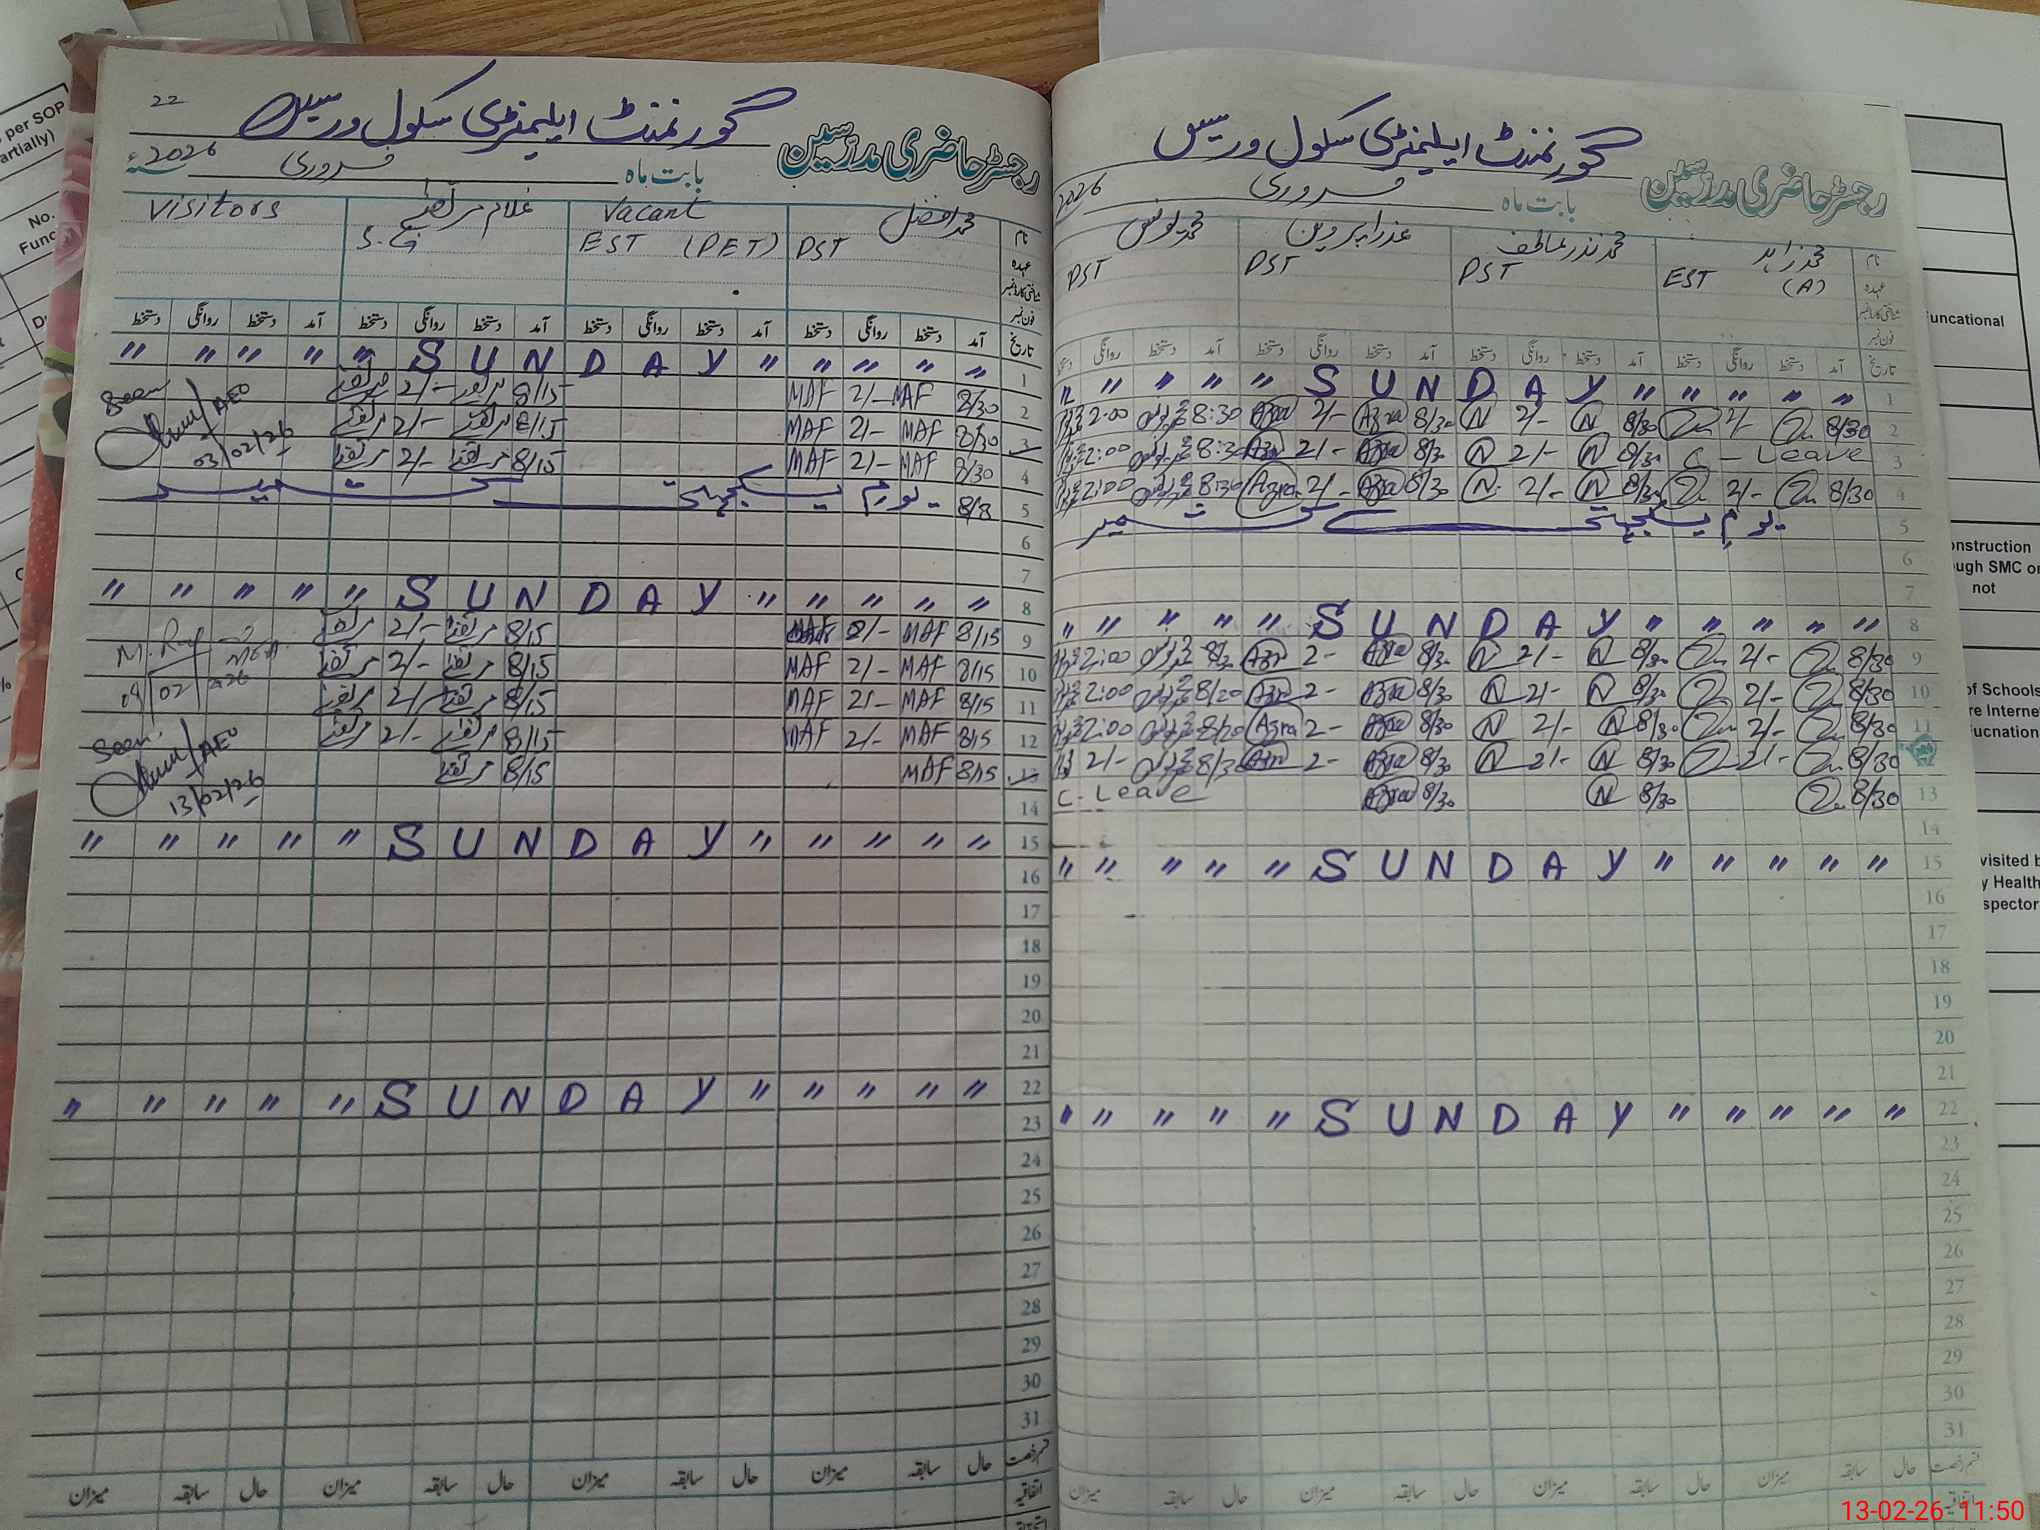 22
گورنمنٹ ایلیمنٹری سکول ورسیں
رجسٹر حاضری مدرسین
بابت ماہ فروری 2026ء
Visitors
غلام مرتضیٰ
Vacant
محمد افضل
نام
EST (PET)
PST
عہدہ
شناختی کارڈ نمبر
فون نمبر
دستخط روانگی دستخط آمد دستخط روانگی دستخط آمد دستخط روانگی دستخط آمد دستخط روانگی دستخط آمد تاریخ
" " " " " S U N D A Y " " " " " 1
Seen AEO 03/02/26
مرتضیٰ 2/- مرتضیٰ 8/15 MAF 2/- MAF 8/30 2
مرتضیٰ 2/- مرتضیٰ 8/15 MAF 2/- MAF 8/30 3
مرتضیٰ 2/- مرتضیٰ 8/15 MAF 2/- MAF 8/30 4
یوم یکجہتی کشمیر 8/3 5
6
7
" " " " " S U N D A Y " " " " " 8
مرتضیٰ 2/- مرتضیٰ 8/15 MAF 2/- MAF 8/15 9
مرتضیٰ 2/- مرتضیٰ 8/15 MAF 2/- MAF 8/15 10
مرتضیٰ 2/- مرتضیٰ 8/15 MAF 2/- MAF 8/15 11
مرتضیٰ 2/- مرتضیٰ 8/15 MAF 2/- MAF 8/15 12
مرتضیٰ 8/15 MAF 8/15 13
Seen. AEO 13/02/26
14
" " " " " S U N D A Y " " " " " 15
16
17
18
19
20
21
" " " " " S U N D A Y " " " " " 22
23
24
25
26
27
28
29
30
31
میزان سابقہ حال میزان سابقہ حال میزان سابقہ حال میزان سابقہ حال قسم رخصت
اتفاقیہ
گورنمنٹ ایلیمنٹری سکول ورسیں
رجسٹر حاضری مدرسین
بابت ماہ فروری 2026
محمد یونس
عذرا پروین
محمد نذر عاطف
محمد زاہد
نام
PST
PST
PST
EST (A)
عہدہ
شناختی کارڈ نمبر
فون نمبر
دستخط روانگی دستخط آمد دستخط روانگی دستخط آمد دستخط روانگی دستخط آمد دستخط روانگی دستخط آمد تاریخ
" " " " " S U N D A Y " " " " " 1
2:00 8:30 Azra 2/- Azra 8/30 N 2/- N 8/30 2/- 8/30 2
2:00 8:30 Azra 2/- Azra 8/30 N 2/- N 8/30 C - Leave 3
2:00 8:30 Azra 2/- Azra 8/30 N 2/- N 8/30 2/- 8/30 4
یوم یکجہتی کشمیر 5
6
7
" " " " " S U N D A Y " " " " " 8
2:00 Azra 2- Azra 8/30 N 2/- N 8/30 2/- 8/30 9
2:00 Azra 2- Azra 8/30 N 2/- N 8/30 2/- 8/30 10
2:00 Azra 2- Azra 8/30 N 2/- N 8/30 2/- 8/30 11
2/- 8/30 Azra 2- Azra 8/30 N 2/- N 8/30 2/- 8/30
C - Leave Azra 8/30 N 8/30 8/30 13
14
" " " " " S U N D A Y " " " " " 15
16
17
18
19
20
21
" " " " " S U N D A Y " " " " " 22
23
24
25
26
27
28
29
30
31
میزان سابقہ حال میزان سابقہ حال میزان سابقہ حال میزان سابقہ حال قسم رخصت
اتفاقیہ
per SOP
artially)
No.
Func
uncational
onstruction
ough SMC or
not
of Schools
re Internet
Fucnation
visited b
y Health
spector
13-02-26 11:50